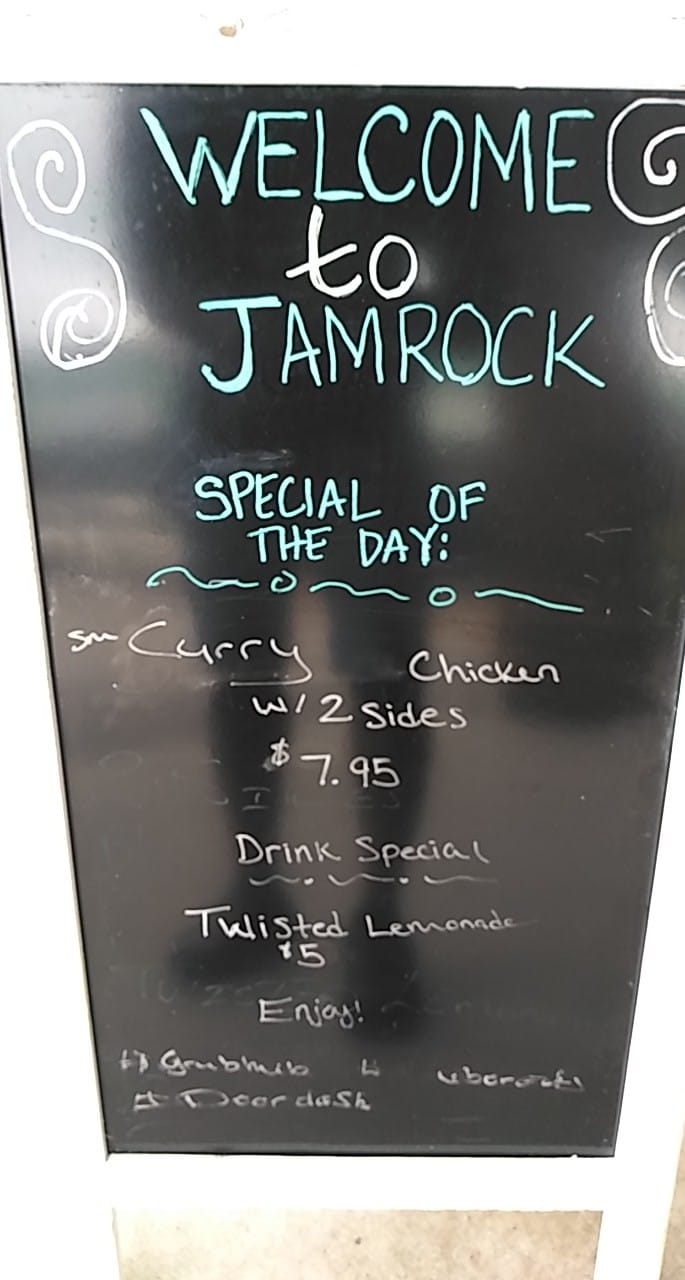 WELCOME
to
JAMROCK
SPECIAL OF
THE DAY:
sm Curry Chicken
w/ 2 Sides
$7.95
Drink Special
Twisted Lemonade
$5
Enjoy!
Grubhub
Doordash